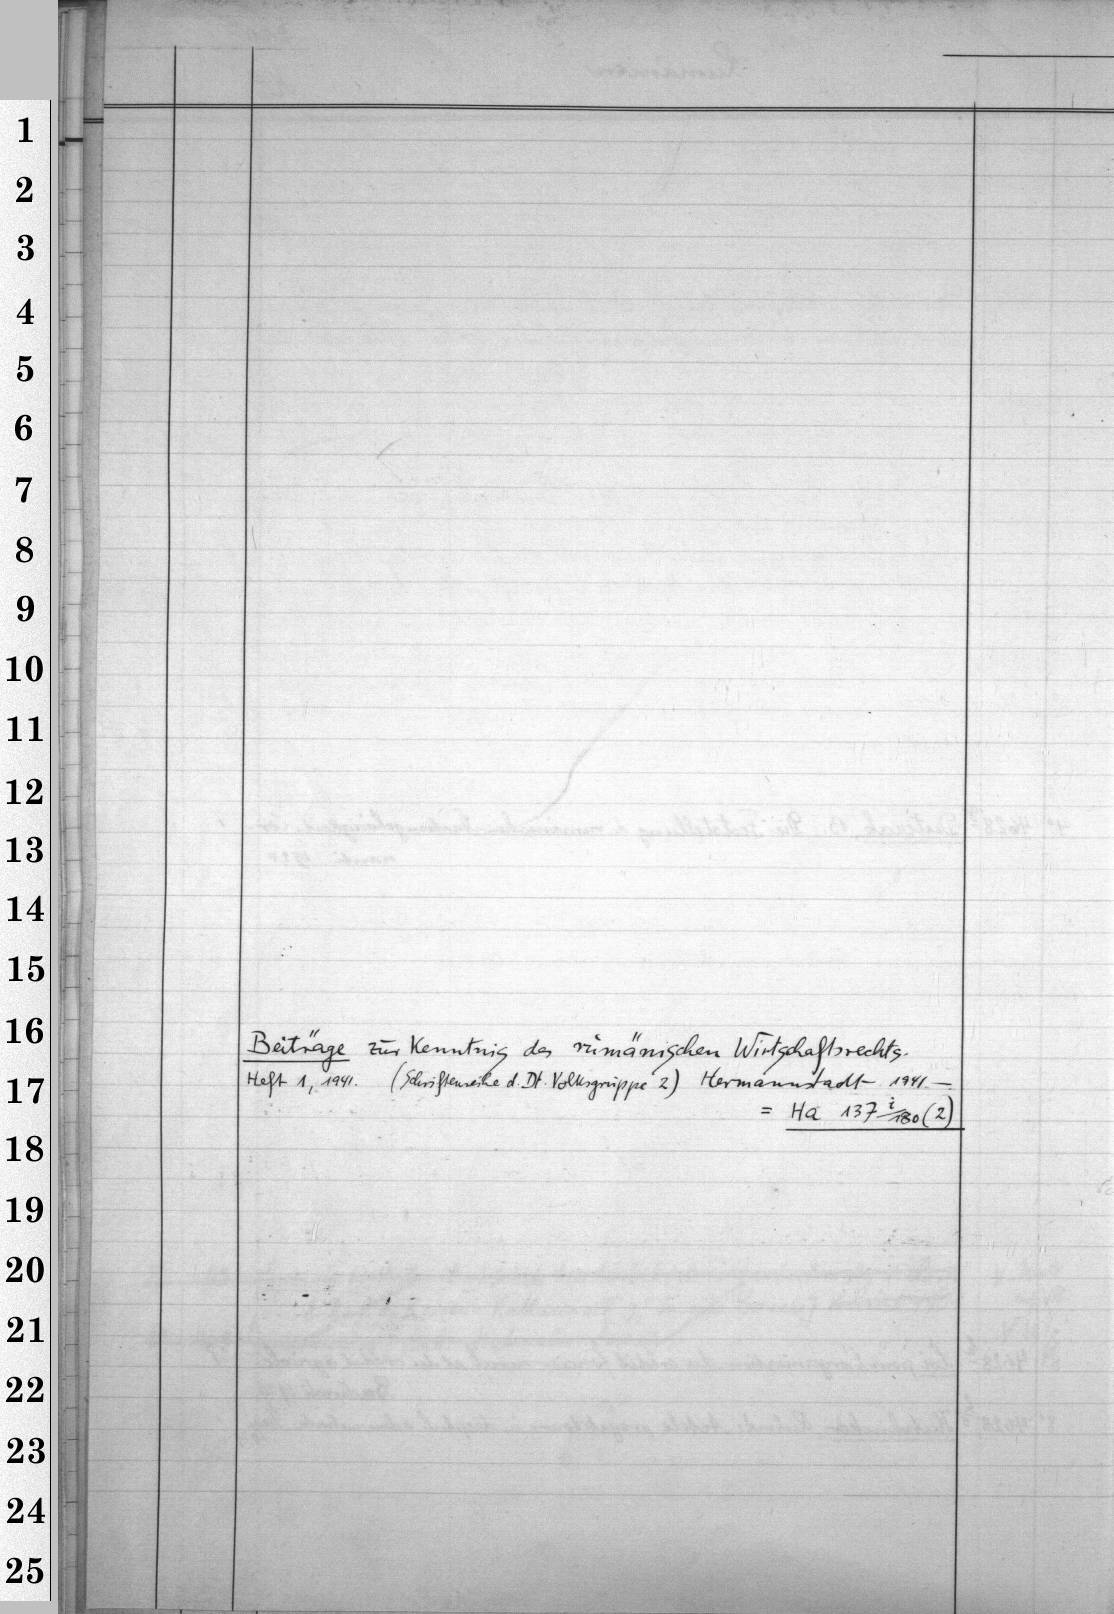 1
2
3
4
5
6
7
8
9
10
11
12
13
14
15
16
Beiträge zur Kenntnis des rumänischen Wirtschaftsrechts.
17
Heft 1, 1941. (Schriftenreihe d. Dt. Volksgruppe 2) Hermannstadt 1941 —
= Ha 137 i/180 (2)
18
19
20
21
22
23
24
25